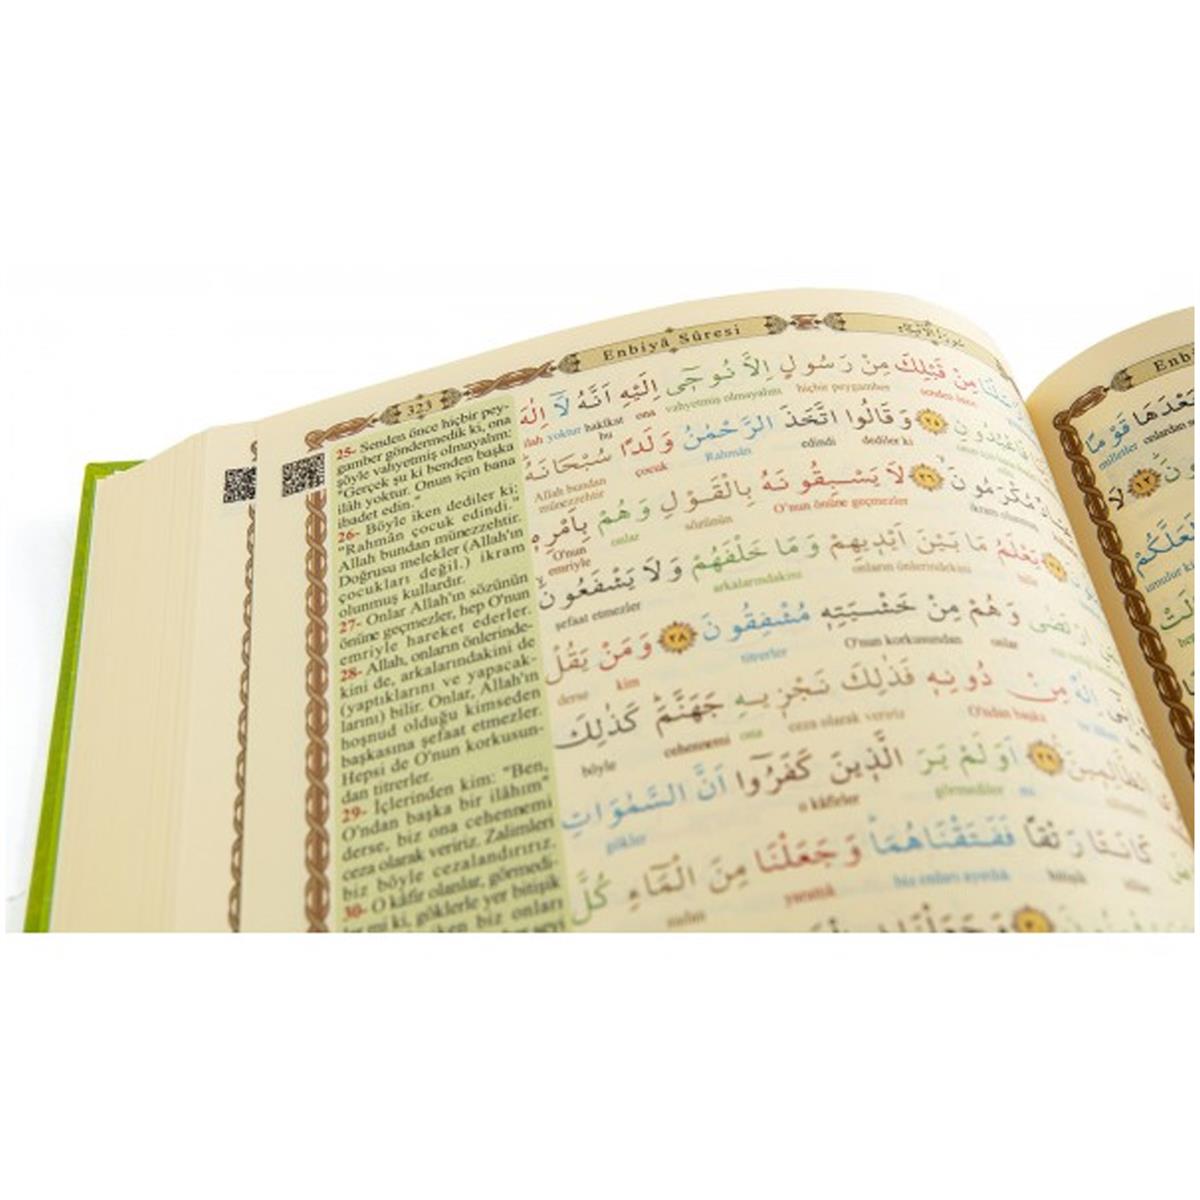 323
Enbiyâ Sûresi
25- Senden önce hiçbir pey-
gamber göndermedik ki, ona
şöyle vahyetmiş olmayalım:
"Gerçek şu ki benden başka
ilâh yoktur. Onun için bana
ibadet edin."
26- Böyle iken dediler ki:
"Rahmân çocuk edindi."
Allah bundan münezzehtir.
Doğrusu melekler (Allah'ın
çocukları değil.) ikram
olunmuş kullardır.
27- Onlar Allah'ın sözünün
önüne geçmezler, hep O'nun
emriyle hareket ederler.
28- Allah, onların önlerinde-
kini de, arkalarındakini de
(yaptıklarını ve yapacak-
larını) bilir. Onlar, Allah'ın
hoşnud olduğu kimseden
başkasına şefaat etmezler.
Hepsi de O'nun korkusun-
dan titrerler.
29- İçlerinden kim: "Ben,
O'ndan başka bir ilâhım"
derse, biz ona cehennemi
ceza olarak veririz. Zalimleri
biz böyle cezalandırırız.
30- O kâfir olanlar, görmedi-
ler mi ki, göklerle yer bitişik
iken biz onları
مِنْ قَبْلِكَ مِنْ رَسُولٍ اِلَّا نُوحٓى اِلَيْهِ اَنَّهُ لَٓا اِلٰهَ
senden önce hiçbir peygamber vahyetmiş olmayalım ona hakikat bu yoktur ilah
فَاعْبُدُونِ ٢٥ وَقَالُوا اتَّخَذَ الرَّحْمٰنُ وَلَدًا سُبْحَانَهُ
dediler ki edindi Rahmân çocuk Allah bundan münezzehtir
مُكْرَمُونَ ٢٦ لَا يَسْبِقُونَهُ بِالْقَوْلِ وَهُمْ بِاَمْرِهٖ
ikram olunmuş O'nun önüne geçmezler sözünün onlar O'nun emriyle
يَعْلَمُ مَا بَيْنَ اَيْدٖيهِمْ وَمَا خَلْفَهُمْ وَلَا يَشْفَعُونَ
bilir onların önlerindekini arkalarındakini şefaat etmezler
ارْتَضٰى وَهُمْ مِنْ خَشْيَتِهٖ مُشْفِقُونَ ٢٨ وَمَنْ يَقُلْ
onlar O'nun korkusundan titrerler kim derse
اِلٰهٌ مِنْ دُونِهٖ فَذٰلِكَ نَجْزٖيهِ جَهَنَّمَ كَذٰلِكَ
O'ndan başka ceza olarak veririz ona cehennemi böyle
الظَّالِمٖينَ ٢٩ اَوَلَمْ يَرَ الَّذٖينَ كَفَرُوا اَنَّ السَّمٰوَاتِ
mi görmediler o kâfirler gökler
كَانَتَا رَتْقًا فَفَتَقْنَاهُمَا وَجَعَلْنَا مِنَ الْمَٓاءِ كُلَّ
bitişik biz onları ayırdık yarattık sudan
٣٠ وَجَعَلْنَا
Enb
بَعْدَهَا قَوْمًا
milletler onlardan s
٤٢
لَا
لَعَلَّكُمْ
umulur ki